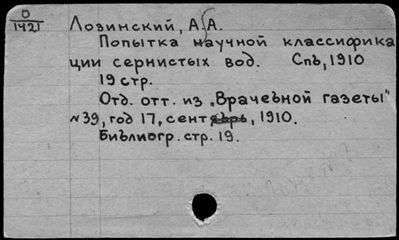 О
1421
Лозинский, А. А.
Попытка научной классифика
ции сернистых вод. Спь, 1910
19 стр.
Отд. отт. из „Врачебной газеты"
№39, год 17, сентябрь, 1910.
Библиогр. стр. 19.